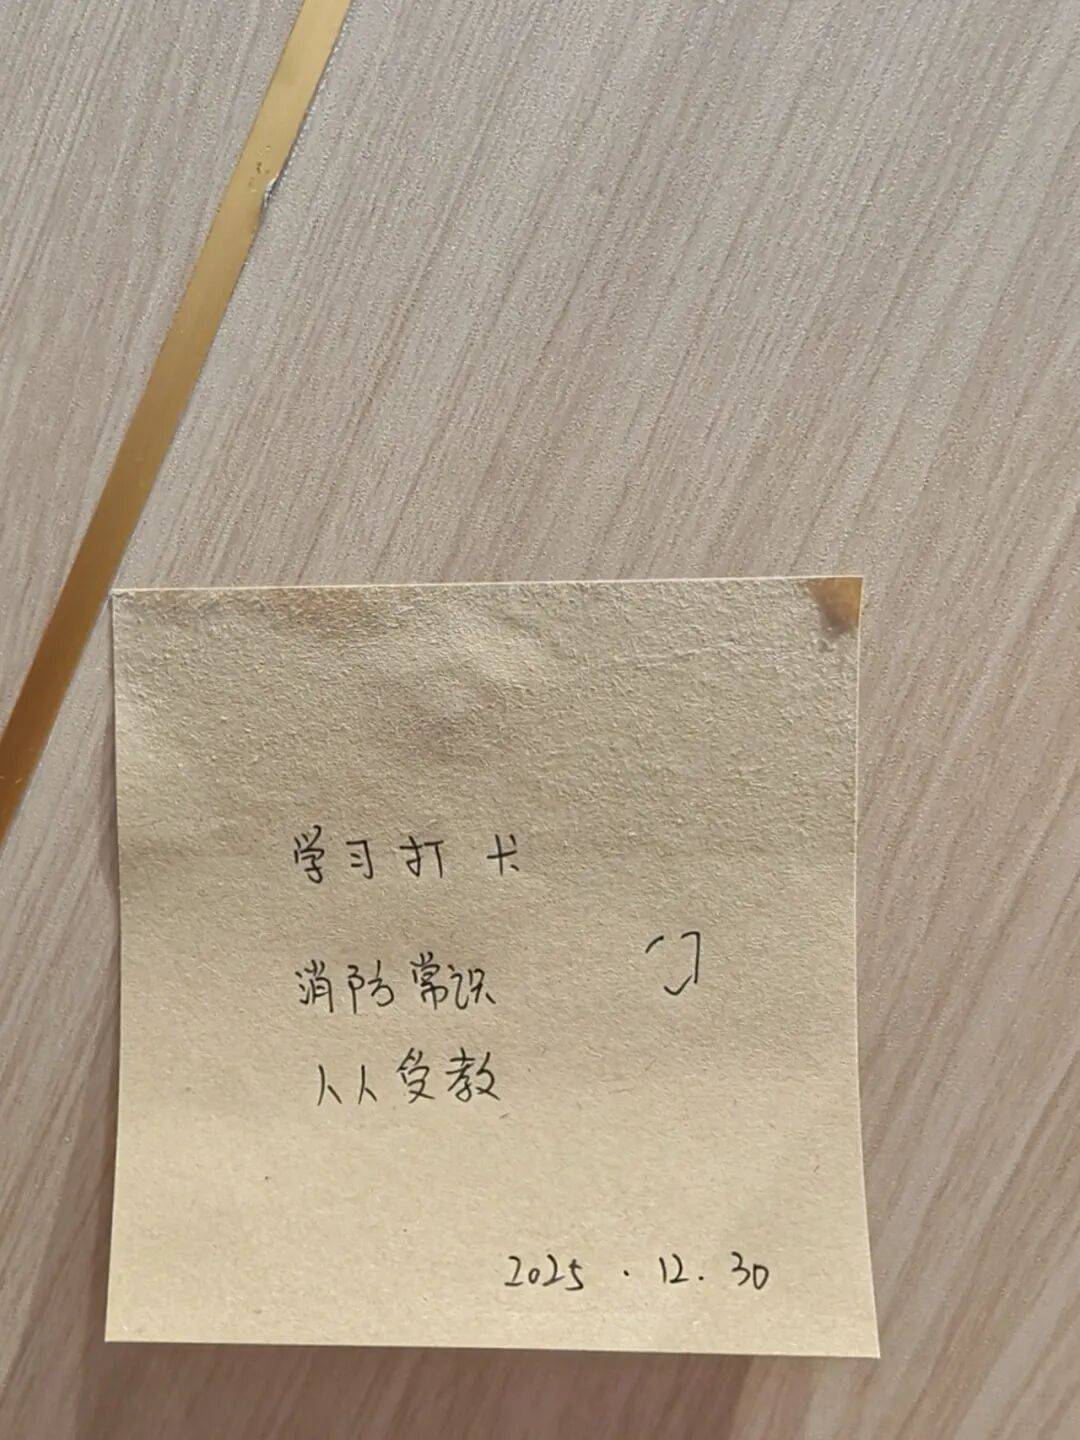 学习打卡
消防常识
人人受教
2025.12.30